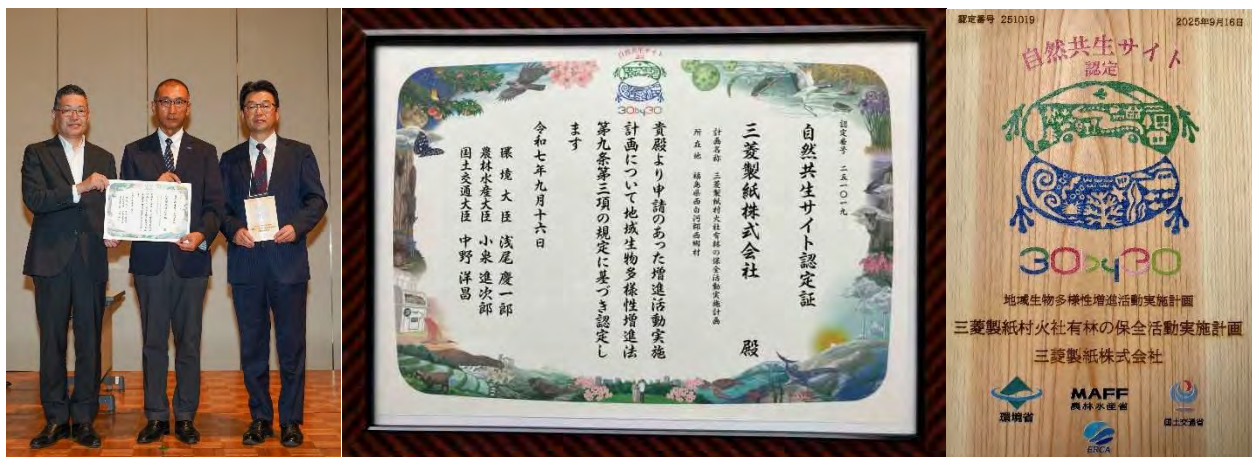 自然共生サイト
認定
30by30
認定番号 二五一〇一九
自然共生サイト認定証
三菱製紙株式会社 殿
計画名称 三菱製紙村火社有林の保全活動実施計画
所在地 福島県西白河郡西郷村
貴殿より申請のあった増進活動実施
計画について地域生物多様性増進法
第九条第三項の規定に基づき認定し
ます
令和七年九月十六日
環境大臣 浅尾 慶一郎
農林水産大臣 小泉 進次郎
国土交通大臣 中野 洋昌
認定番号 251019
2025年9月16日
自然共生サイト
認定
30by30
地域生物多様性増進活動実施計画
三菱製紙村火社有林の保全活動実施計画
三菱製紙株式会社
環境省
MAFF
農林水産省
国土交通省
ERCA